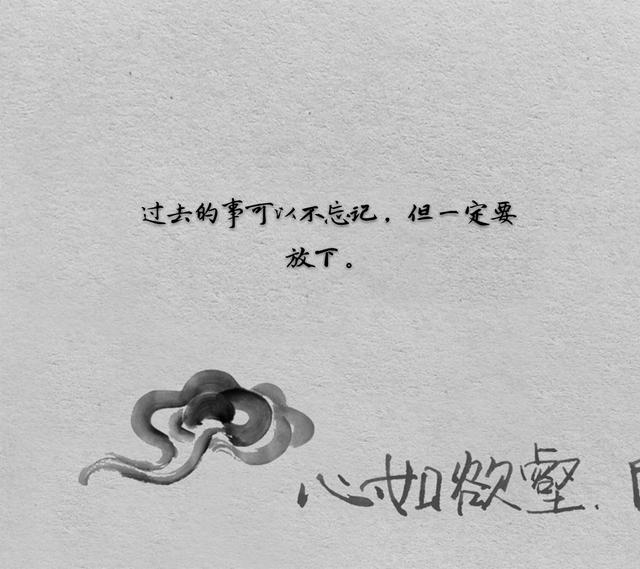 过去的事可以不忘记，但一定要
放下。
心如欲壑.